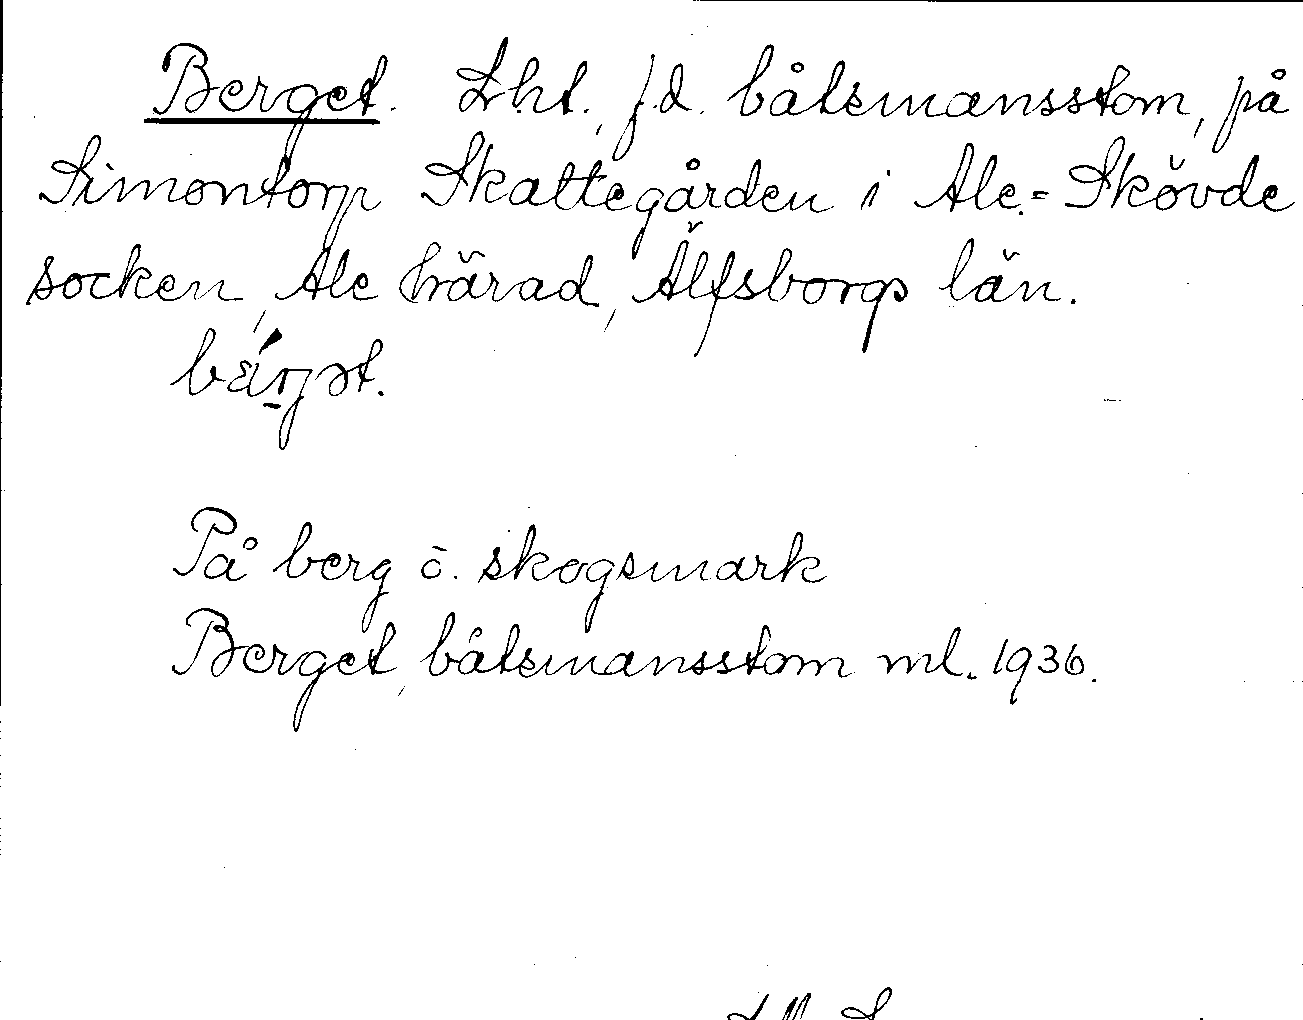 Berget. Lht., f.d. båtsmansstom, på
Simontorp Skattegården i Ale-Skövde
socken, Ale härad, Älfsborgs län.
På berg o. skogsmark
Berget, båtsmansstom ml. 1936.